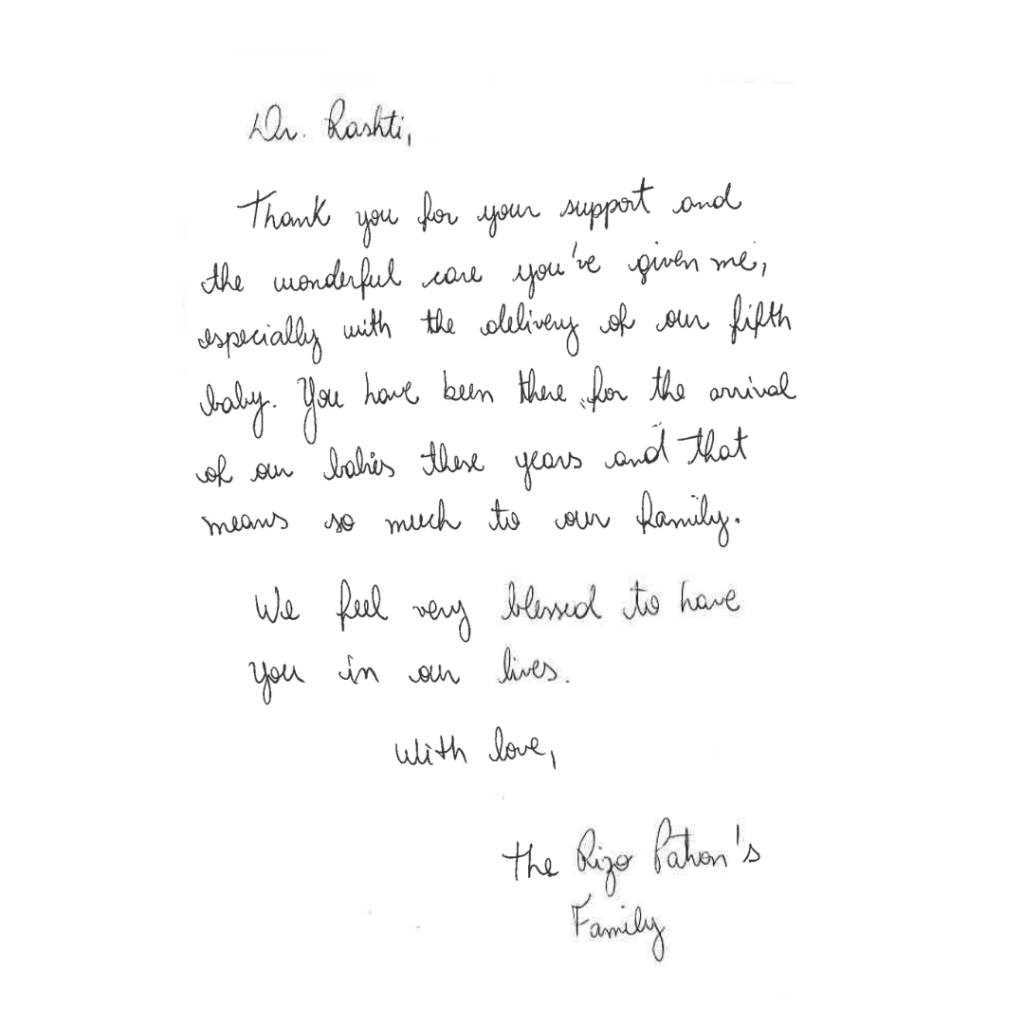 Dr. Rashti,
Thank you for your support and
the wonderful care you've given me,
especially with the delivery of our fifth
baby. You have been there for the arrival
of our babies these years and that
means so much to our family.
We feel very blessed to have
you in our lives.
With love,
The Rizo Patron's
Family